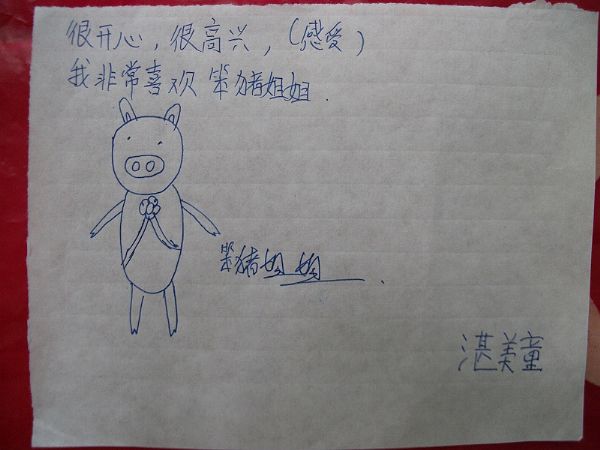 很开心，很高兴，（感爱）
我非常喜欢 笨猪姐姐．
笨猪姐姐．
湛美童